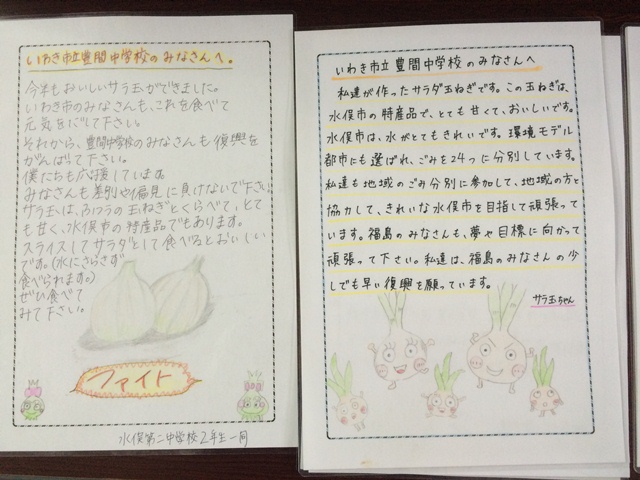 いわき市立豊間中学校のみなさんへ。
今年もおいしいサラ玉ができました。
いわき市のみなさんも、これを食べて
元気をだして下さい。
それから、豊間中学校のみなさんも復興を
がんばて下さい。
僕たちも応援しています。
みなさんも差別や偏見に負けないで下さい
サラ玉は、ふつうの玉ねぎとくらべて、とて
も甘く、水俣市の特産品でもあります。
スライスしてサラダとして食べるとおいしい
です。(水にさらさず
食べられます。)
ぜひ食べて
みて下さい。
ファイト
水俣第二中学校2年生一同
いわき市立豊間中学校のみなさんへ
私達が作ったサラダ玉ねぎです。この玉ねぎは、
水俣市の特産品で、とても甘くて、おいしいです。
水俣市は、水がとてもきれいです。環境モデル
都市にも選ばれ、ごみを24つに分別しています。
私達も地域のごみ分別に参加して、地域の方と
協力して、きれいな水俣市を目指して頑張って
います。福島のみなさんも、夢や目標に向かって
頑張って下さい。私達は、福島のみなさんの少
しでも早い復興を願っています。
サラ玉ちゃん